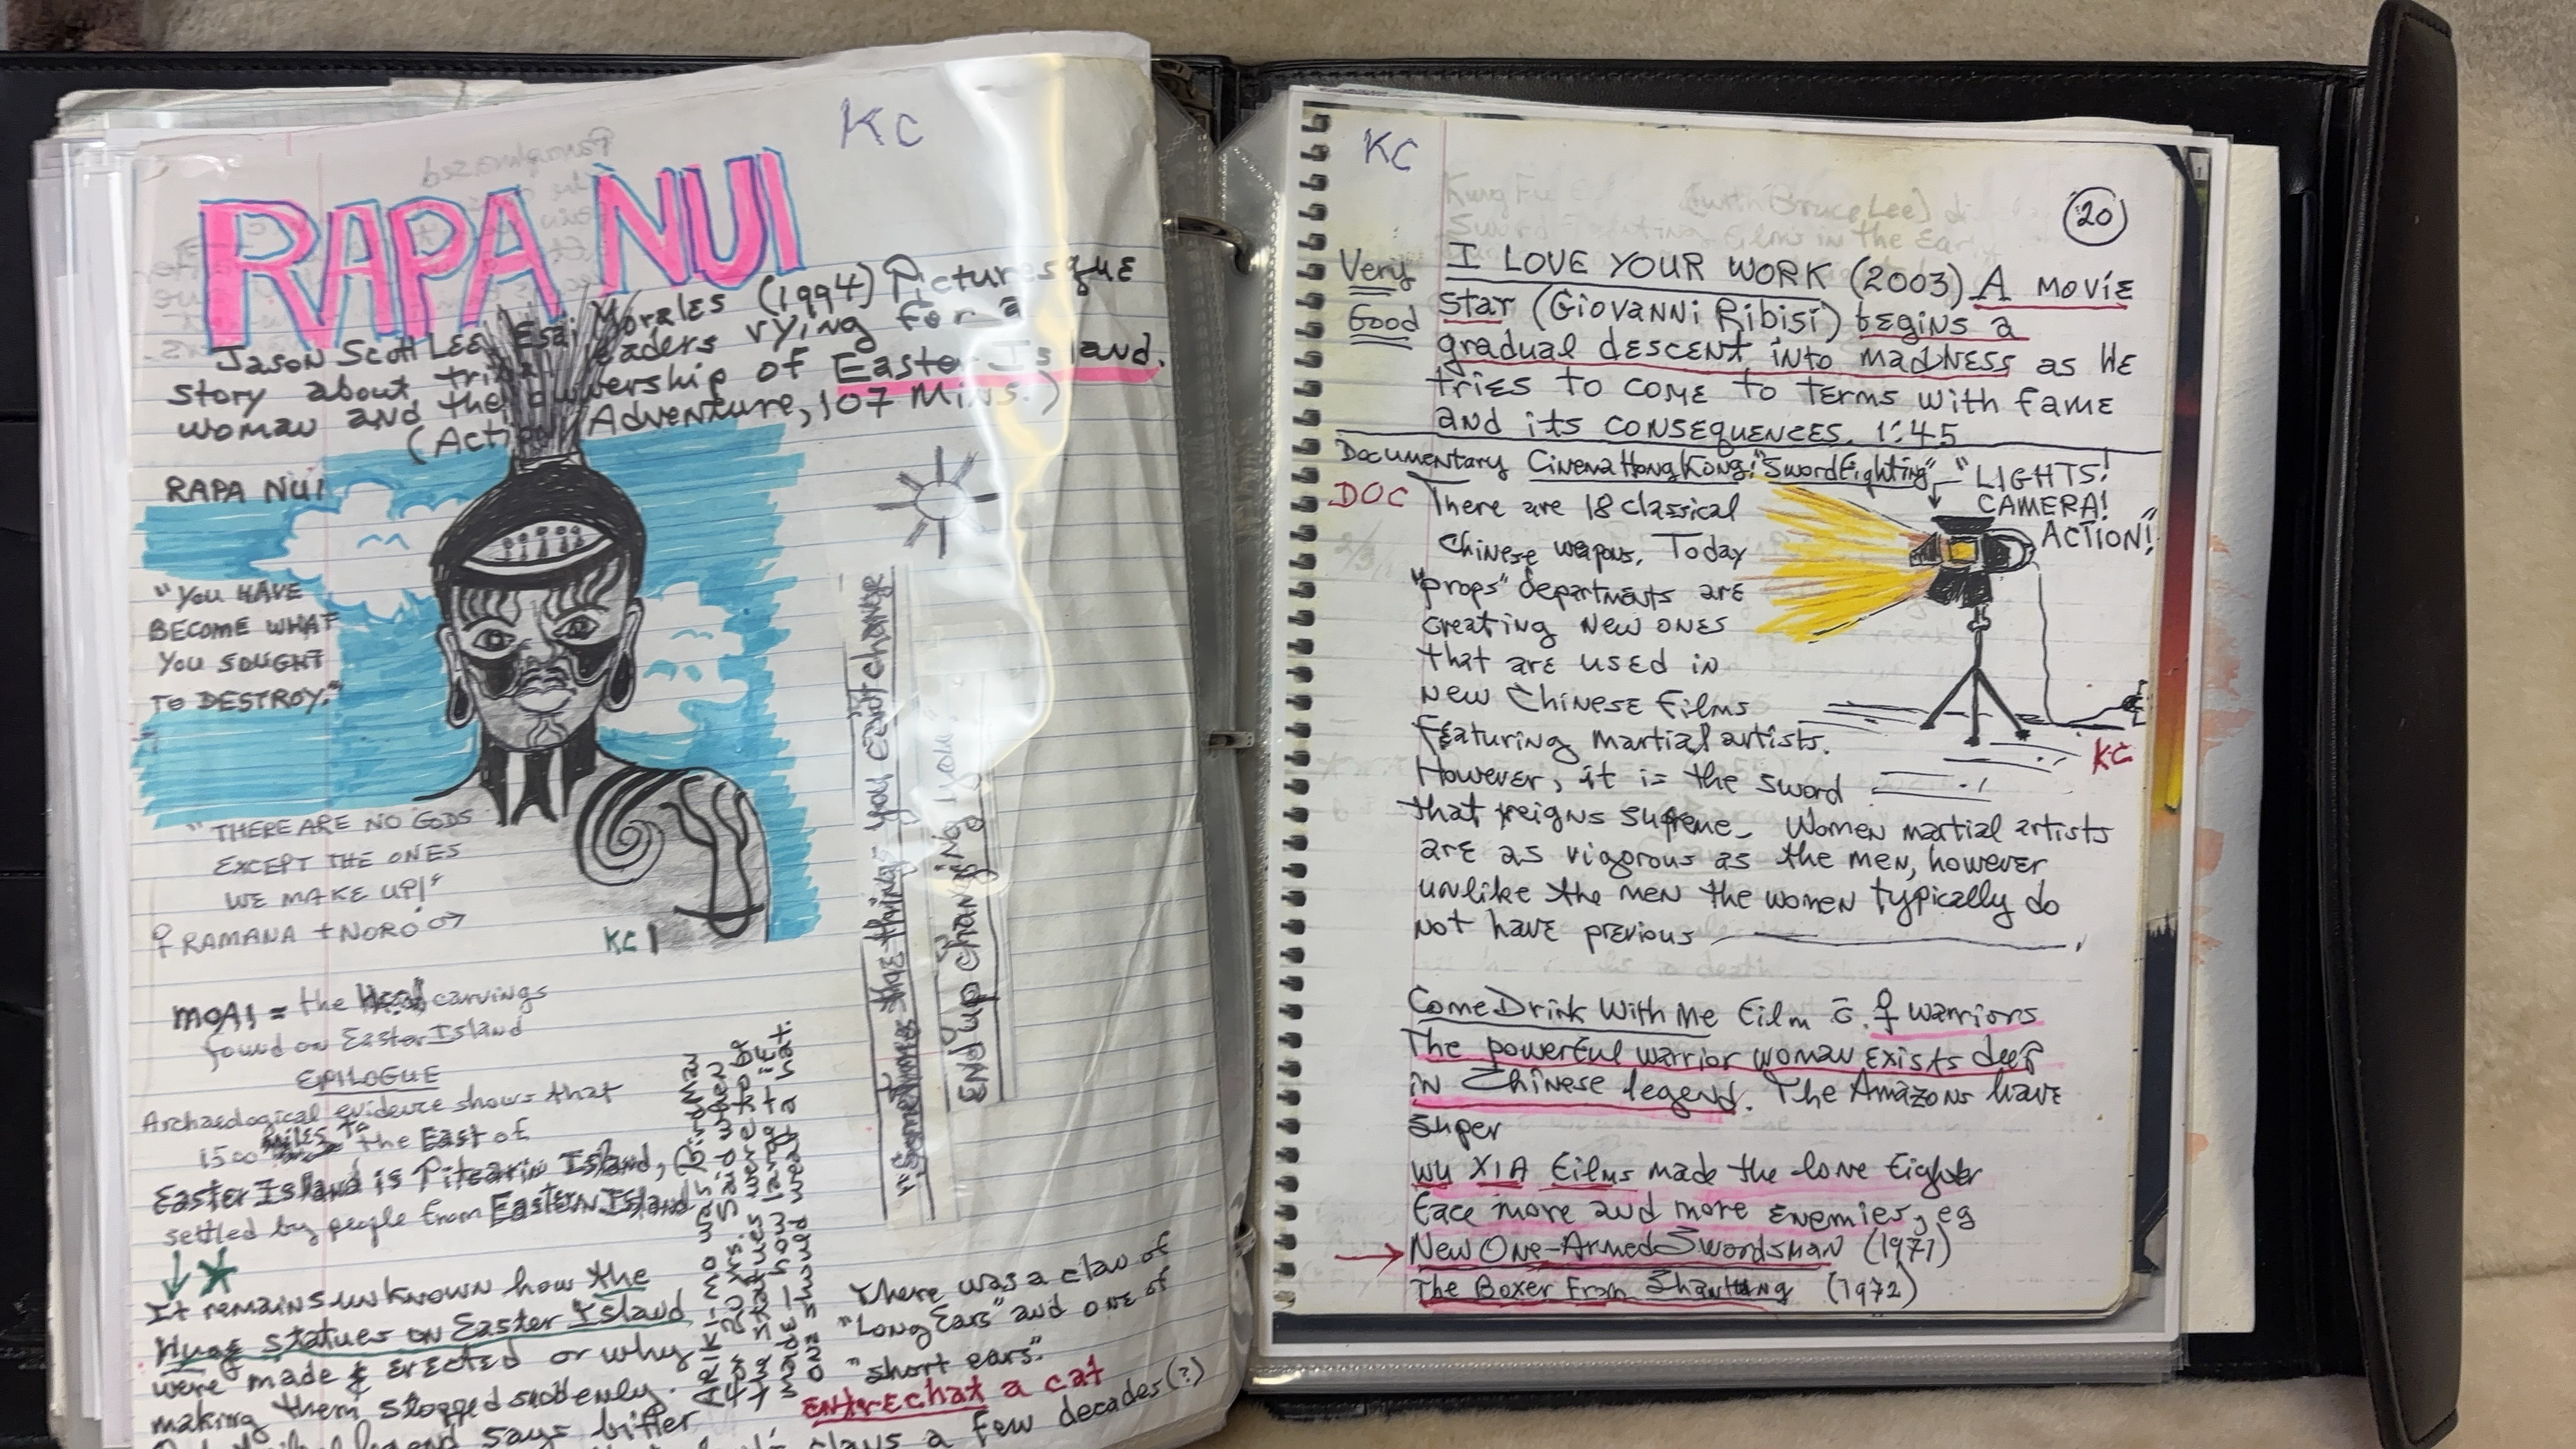 KC
RAPA NUI
Jason Scott Lee, Esai Morales (1994) Picturesque
story about tribal leaders vying for a
woman and the ownership of Easter Island.
(Action Adventure, 107 Mins.)
RAPA NUI
"YOU HAVE
BECOME WHAT
YOU SOUGHT
TO DESTROY."
"THERE ARE NO GODS
EXCEPT THE ONES
WE MAKE UP!"
♀ RAMANA + NORO ♂
KC
"Sometimes the things you can't change
END up changing you."
MOAI = the Head carvings
found on Easter Island
EPILOGUE
Archaeological evidence shows that
1500 miles to the East of
Easter Island is Pitcarin Island,
settled by people from Eastern Island
It remains unknown how the
Huge statues on Easter Island
were made & erected or why
making them stopped suddenly.
legend says bitter
ARIKI-MO was Birdman
for 20 yrs. Said when
statues were to be
made how large &
one should wear a hat.
There was a clan of
"Long Ears" and one of
"short ears."
Entrechat a cat
clans a few decades (?)
KC
20
Very
Good
I LOVE YOUR WORK (2003) A movie
star (Giovanni Ribisi) begins a
gradual descent into madness as he
tries to come to terms with fame
and its consequences. 1:45
Documentary Cinema Hong Kong: "Sword Fighting"
"LIGHTS!
CAMERA!
ACTION!"
DOC There are 18 classical
Chinese weapons. Today
"props" departments are
creating new ones
that are used in
new Chinese films
featuring martial artists.
However, it is the sword
KC
that reigns supreme. Women martial artists
are as vigorous as the men, however
unlike the men the women typically do
not have previous
Come Drink With Me film c̄ ♀ warriors
The powerful warrior woman exists deep
in Chinese legend. The Amazons have
super
WU XIA Films made the lone fighter
face more and more enemies, eg
New One-Armed Swordsman (1971)
The Boxer From Shantung (1972)